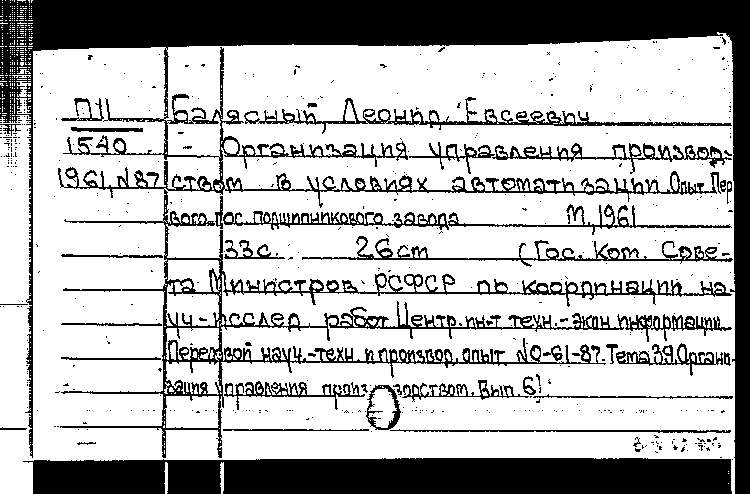 П11 Балясный, Леонид Евсеевич
1540 - Организация управления производ-
1961, N87 ством в условиях автоматизации. Опыт Пер
вого гос. подшипникового завода М., 1961
33с. 26cm (Гос. Ком. Сове-
та Министров РСФСР по координации на-
уч-исслед работ Центр. ин-т техн.-экон информации
Передовой науч.-техн. и производ. опыт NO-61-87. Тема 39. Органи-
зация управления произ водством. Вып. 6).